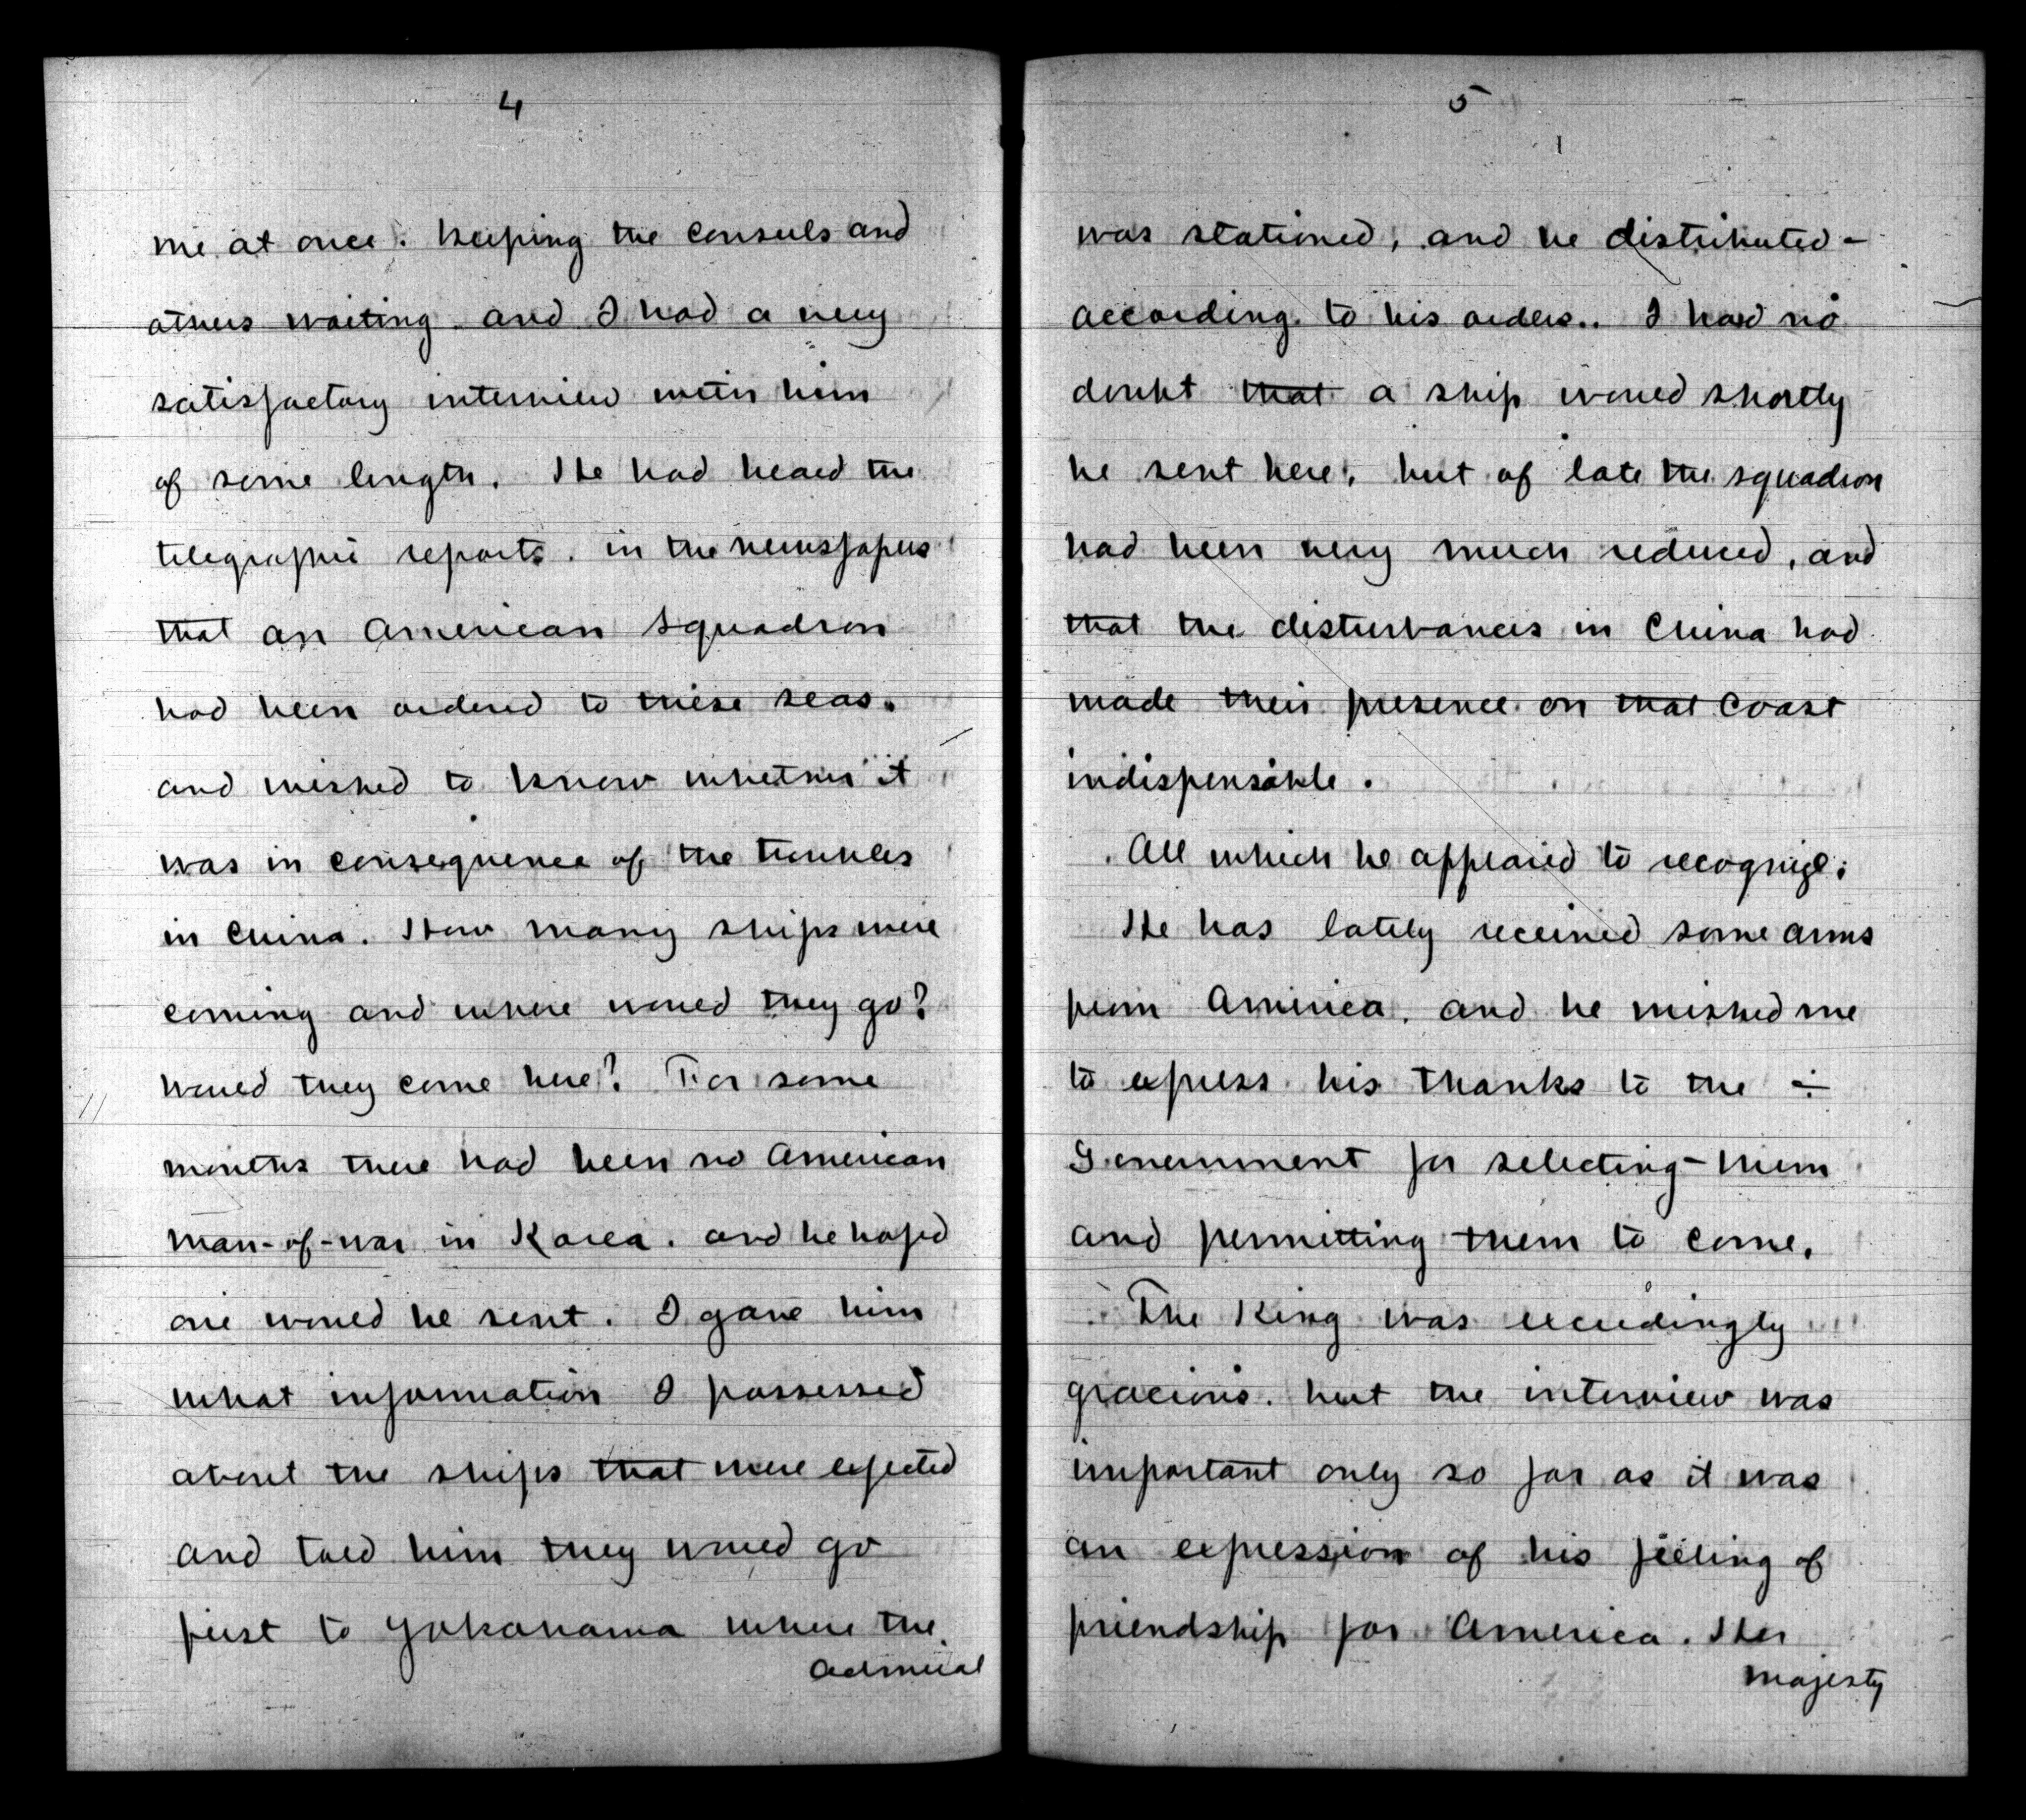 4
me at once. keeping the Consuls and
others waiting and I had a very
satisfactory interview with him
of some length. He had heard the
telegraphic reports. in the newspapers
that an American squadron
had been ordered to these seas.
and wished to know whether it
was in consequence of the troubles
in China. How many ships were
coming and where would they go?
would they come here? For some
months there had been no American
man-of-war in Korea. and he hoped
one would be sent. I gave him
what information I possessed
about the ships that were expected
and told him they would go
first to Yokohama where the
Admiral
5
was stationed, and be distributed -
according to his orders.. I had no
doubt that a ship would shortly
be sent here, but of late the squadron
had been very much reduced, and
that the disturbances in China had
made their presence on that Coast
indispensable.
All which he appeared to recognize;
He has lately received some arms
from America. and he wished me
to express his thanks to the
Government for selecting - them
and permitting them to come.
The King was exceedingly
gracious. but the interview was
important only so far as it was
an expression of his feeling of
friendship for America. Her
Majesty